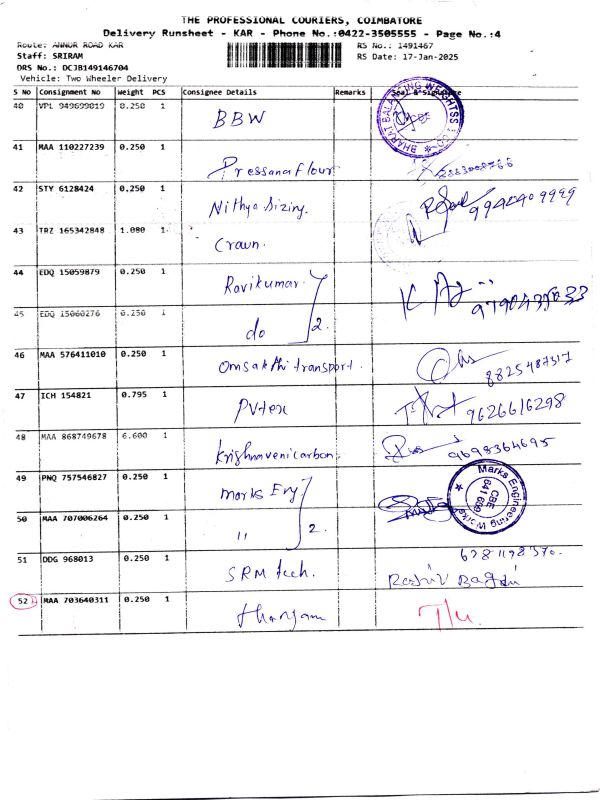 THE PROFESSIONAL COURIERS, COIMBATORE
Delivery Runsheet - KAR - Phone No.:0422-3505555 - Page No.:4
Route: ANNUR ROAD KAR RS No.: 1491467
Staff: SRIRAM RS Date: 17-Jan-2025
DRS No.: DCJB149146704
Vehicle: Two Wheeler Delivery
S No Consignment No Weight PCS Consignee Details Remarks
40 VPL 949699019 0.250 1 BBW
BHARAT BALANCING WEIGHTSS
41 MAA 110227239 0.250 1 Pressana flour
42 STY 6128424 0.250 1 Nithya Sizing. 9940409999
43 TRZ 165342848 1.080 1 Crown.
44 EDQ 15059879 0.250 1 Ravikumar
45 EDQ 15060276 0.250 1 do 2.
46 MAA 576411010 0.250 1 Omsakthi transport. 8825487517
47 ICH 154821 0.795 1 PVtex 9626616298
48 MAA 868749678 6.600 1 Krishnavenicarbon 9698364695
49 PNQ 757546827 0.250 1 Marks Eng
Marks Engineering Works
CBE
641 600
50 MAA 707006264 0.250 1 " 2.
51 DDG 968013 0.250 1 SRM tech.
52 MAA 703640311 0.250 1